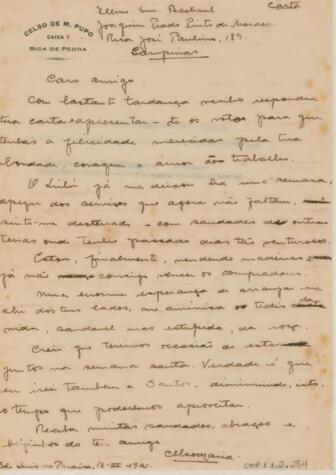 CELSO DE M. PUPO
CAIXA 7
BICA DE PEDRA
Carta
Illmo. Snr. Bacharel
Joaquim Prado Pinto de Moraes
Rua José Paulino, 189.
Campinas
Caro amigo.
Com bastante tardança venho responder
tua carta e apresentar-te os votos para que
tenhas a felicidade merecida pela tua
bondade, coragem e amor ao trabalho.
O já me deixou ha uma semana,
apezar dos serviços que agora não faltam,
sinto-me desterrado e com saudades de outras
terras onde tenho passado dias tão venturosos.
Estou, finalmente, vendendo madeiras e
já não consigo vencer os compradores.
Uma enorme esperança de arranjar-me
ahi dos teus lados, me aminisa o tedio da
vida, saudavel mas estupida, da roça.
Creio que teremos occasião de estar
juntos na semana santa. Verdade é que
eu irei tambem a Santos, diminuindo, isto,
o tempo que poderemos aproveitar.
Receba muitas saudades, abraços e
beijinhos do teu amigo
Celsomaria.
CMP.1.1.2.254